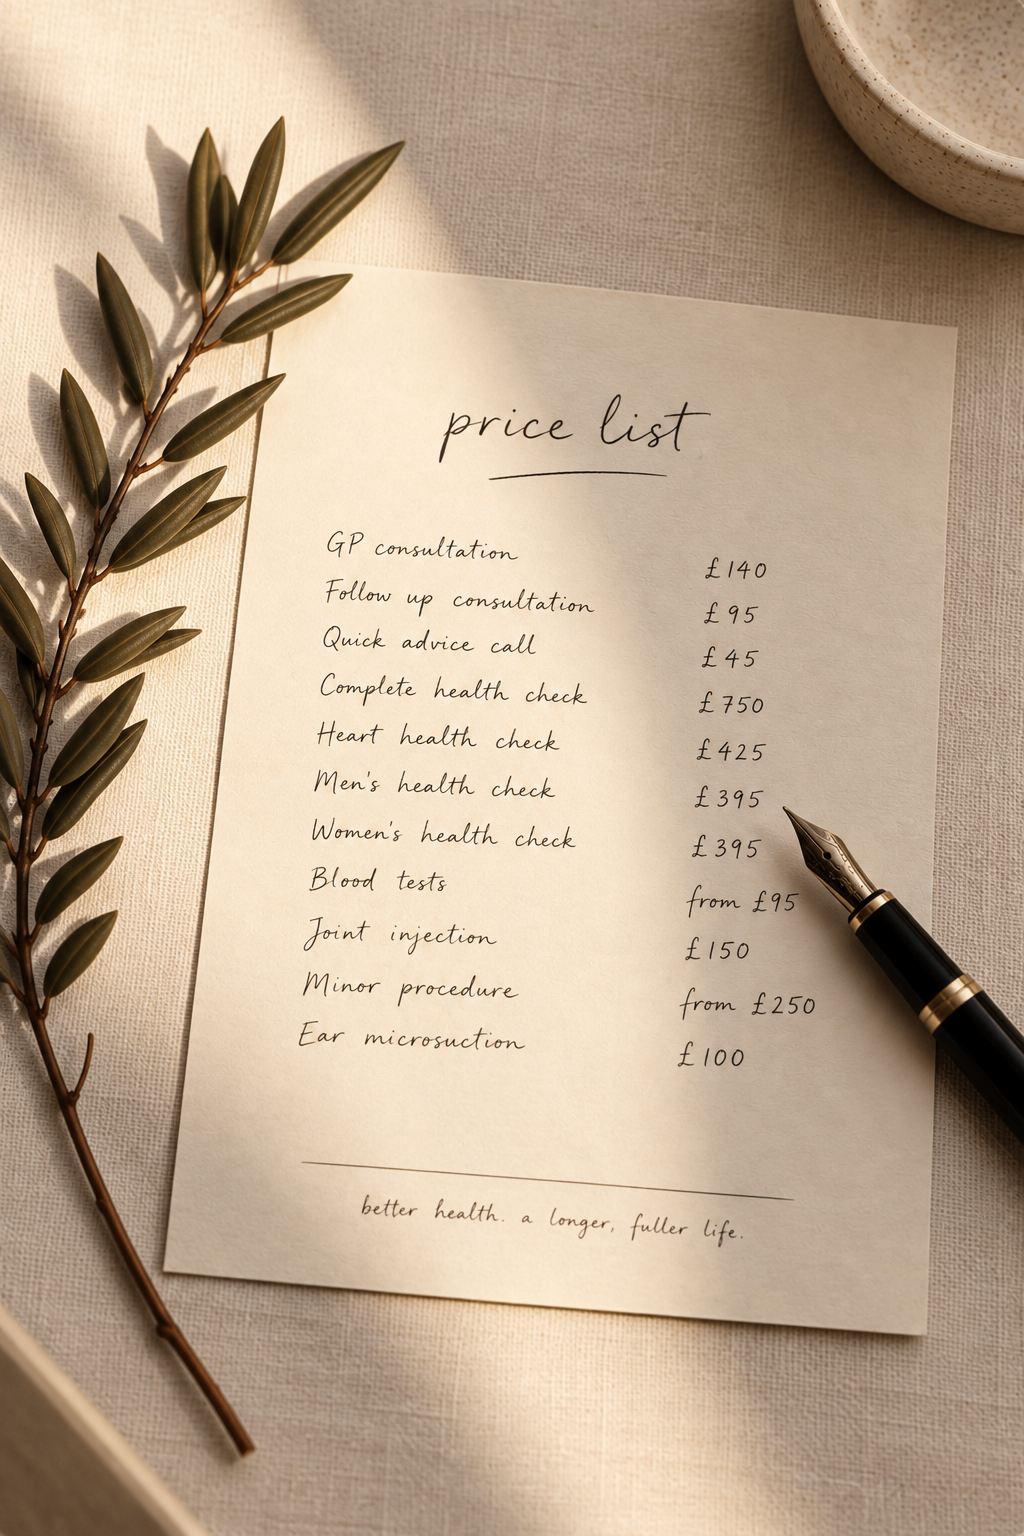 price list
GP consultation £140
Follow up consultation £95
Quick advice call £45
Complete health check £750
Heart health check £425
Men's health check £395
Women's health check £395
Blood tests from £95
Joint injection £150
Minor procedure from £250
Ear microsuction £100
better health. a longer, fuller life.